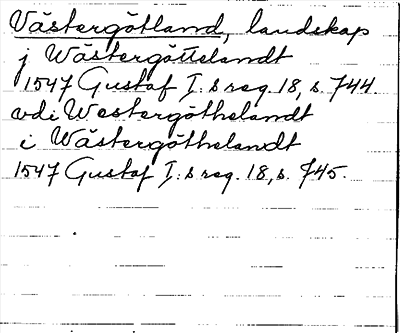 Västergötland, landskap
j Wästergöttelandt
1547 Gustaf I:s reg. 18, s. 744
vdi Westergöthelandt
i Wästergöthelandt
1547 Gustaf I:s reg. 18, s. 745.